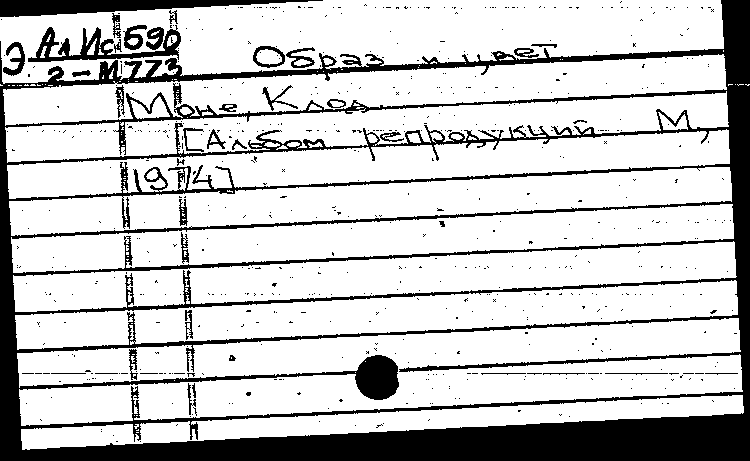 Э. Ал Ис 690
2-М 773
Образ и цвет
Моне, Клод.
[Альбом репродукций М,
1974]